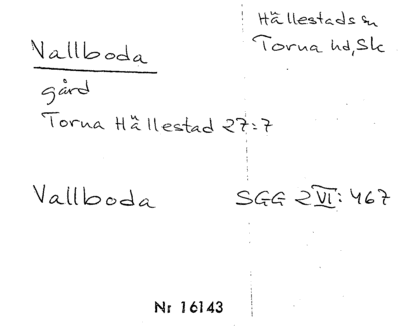 Hällestads sn
Torna hd, Sk
Vallboda
gård
Torna Hällestad 27:7
Vallboda SGG 2 VI: 467
Nr 16143